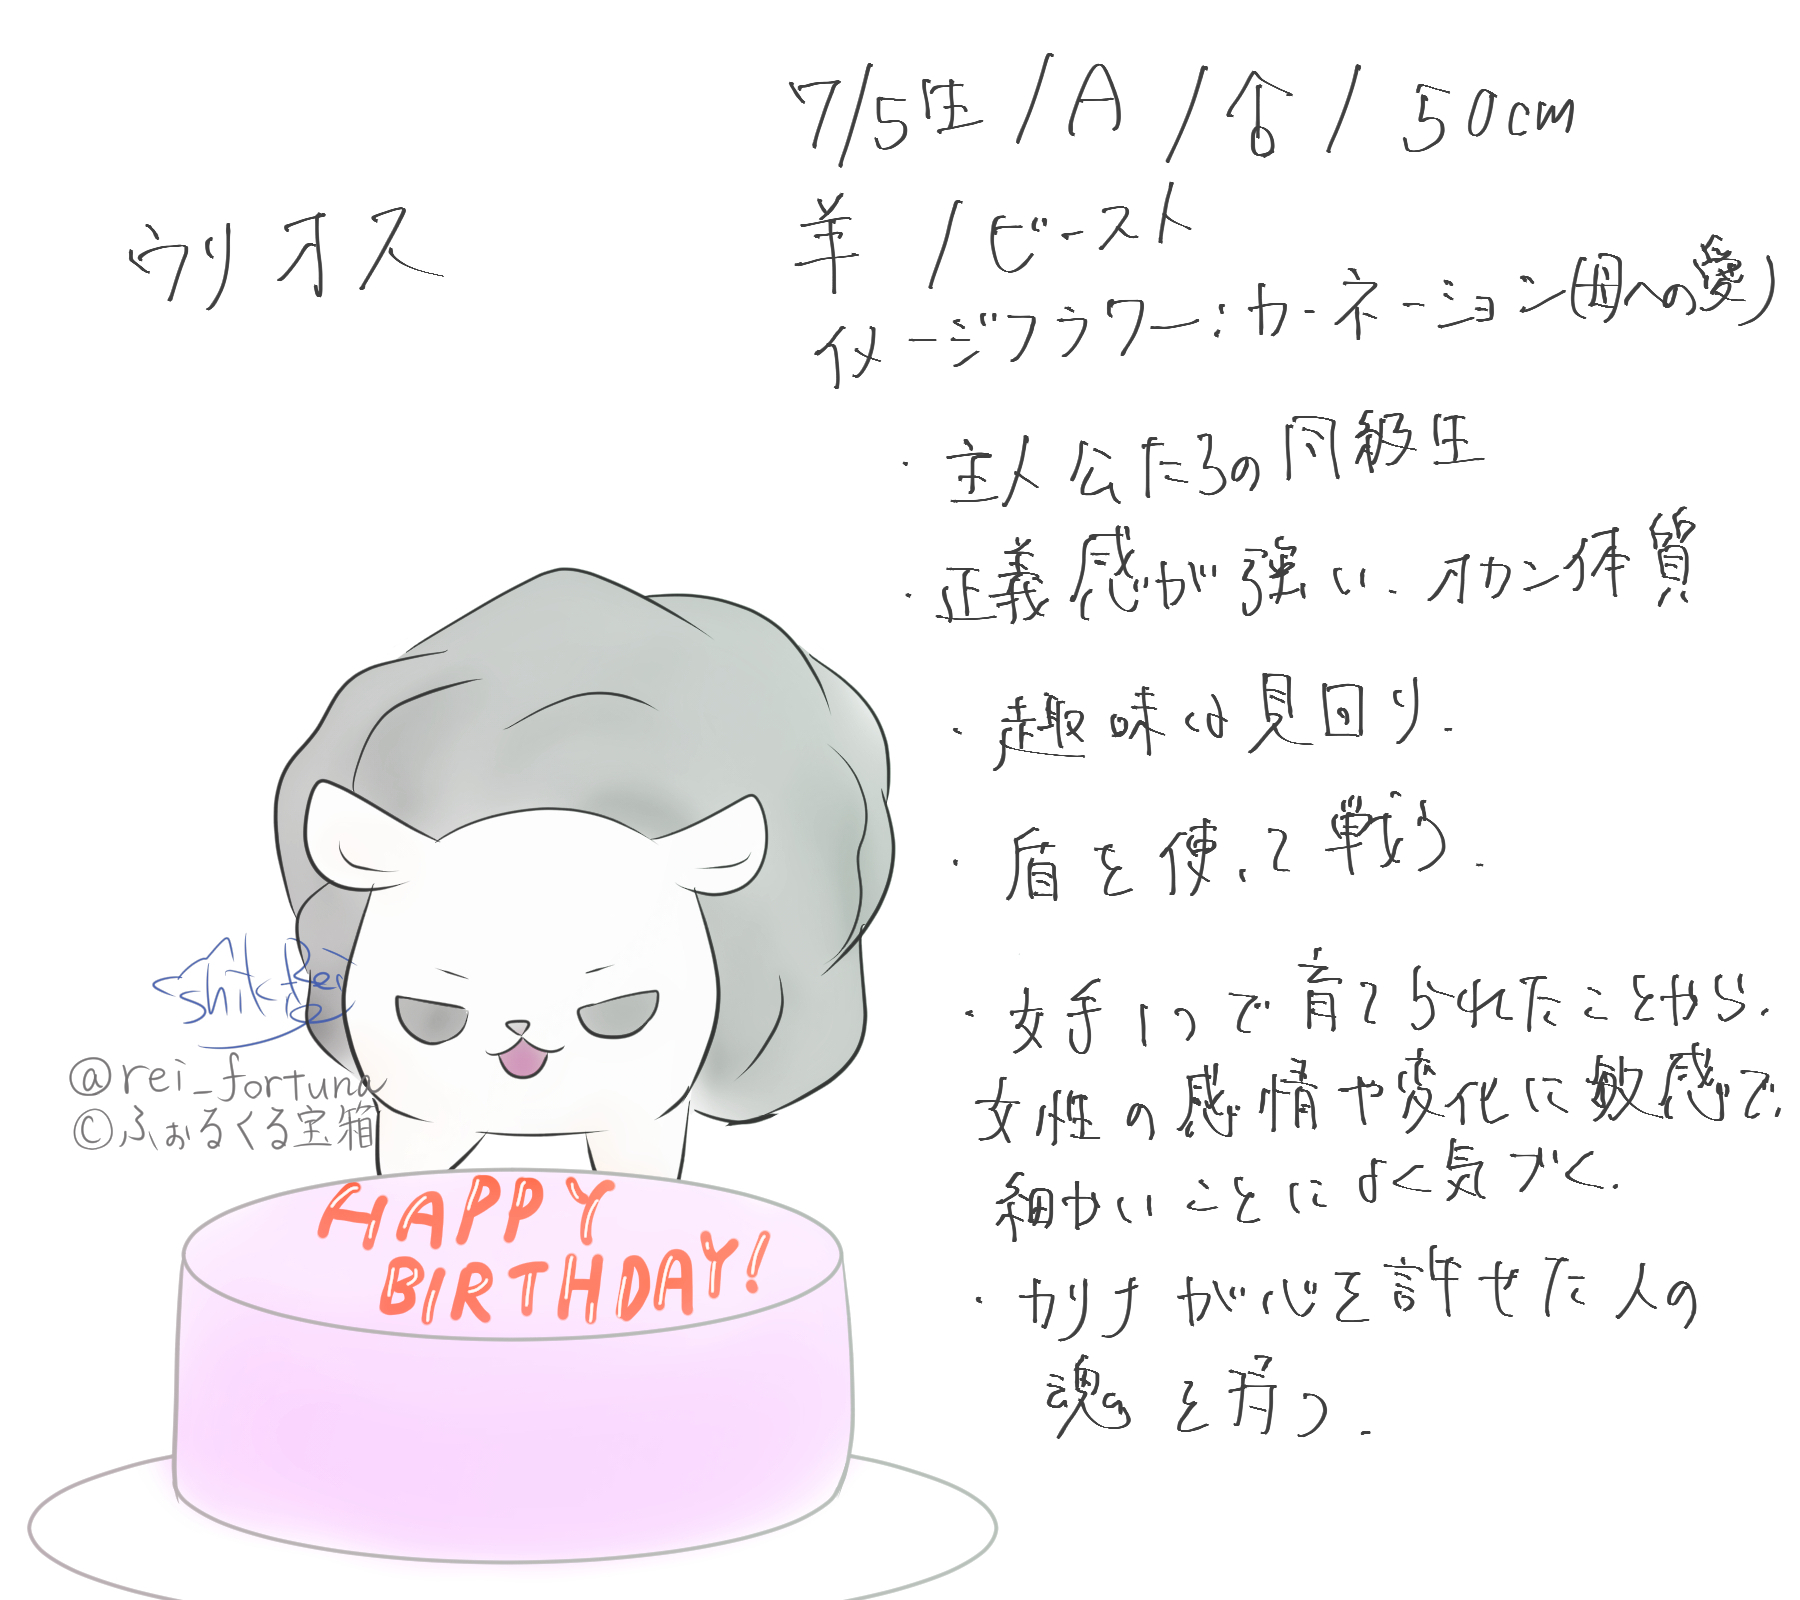 ウリオス
7/5生/A/♂/50cm
羊/ビースト
イメージフラワー:カーネーション(母への愛)
・主人公たちの同級生
・正義感が強い.オカン体質
・趣味は見回り.
・盾を使って戦う.
・女手1つで育てられたことから.
女性の感情や変化に敏感で.
細かいことによく気づく.
・カリナが心を許せた人の
魂を持つ.
Shiki Rei
@rei_fortuna
©ふぉるくる宝箱
HAPPY
BIRTHDAY!